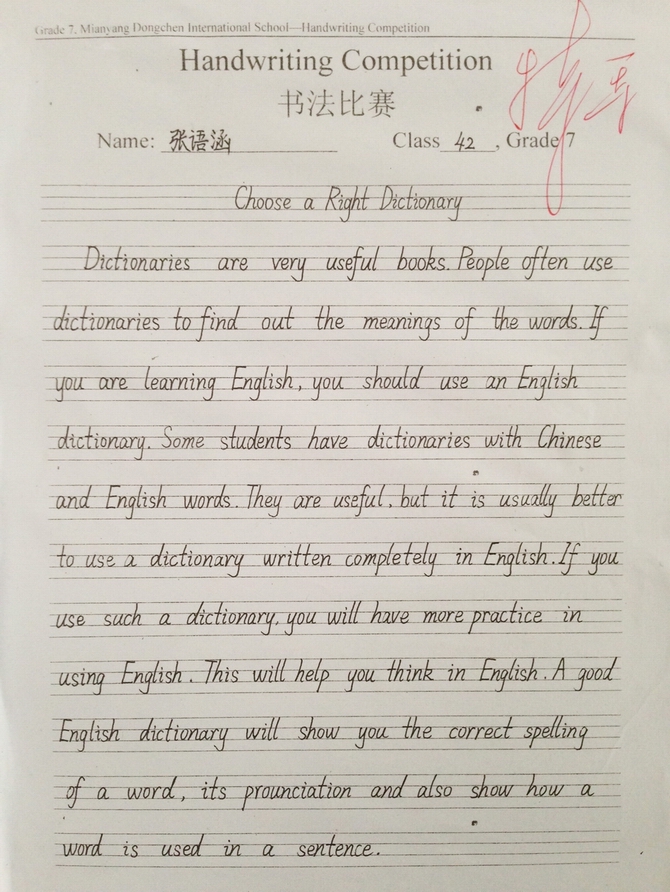 Grade 7, Mianyang Dongchen International School—Handwriting Competition
Handwriting Competition
书法比赛
特等
Name: 张语涵 Class 42, Grade 7
Choose a Right Dictionary
Dictionaries are very useful books. People often use
dictionaries to find out the meanings of the words. If
you are learning English, you should use an English
dictionary. Some students have dictionaries with Chinese
and English words. They are useful, but it is usually better
to use a dictionary written completely in English. If you
use such a dictionary, you will have more practice in
using English. This will help you think in English. A good
English dictionary will show you the correct spelling
of a word, its prounciation and also show how a
word is used in a sentence.